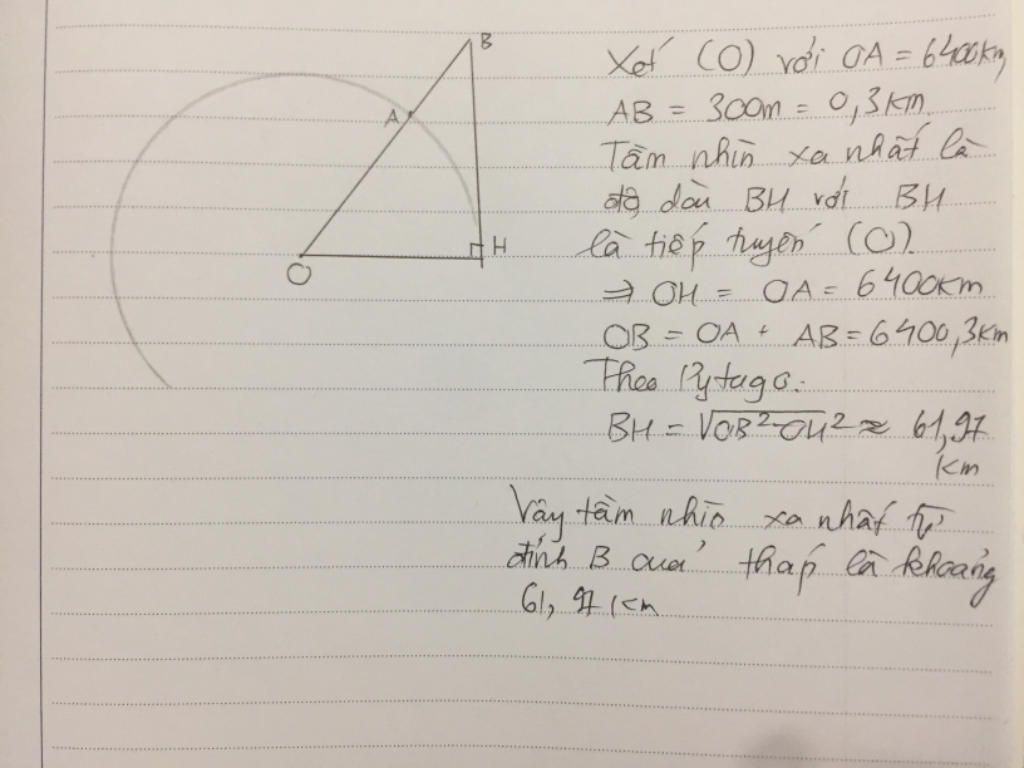 B
A
H
O
Xét (O) với OA = 6400km
AB = 300m = 0,3km
Tầm nhìn xa nhất là
độ dài BH với BH
là tiếp tuyến (O).
⇒ OH = OA = 6400km
OB = OA + AB = 6400,3km
Theo Pytago.
BH = √OB²-OH² ≈ 61,97
km
Vậy tầm nhìn xa nhất từ
đỉnh B của tháp là khoảng
61,97 km